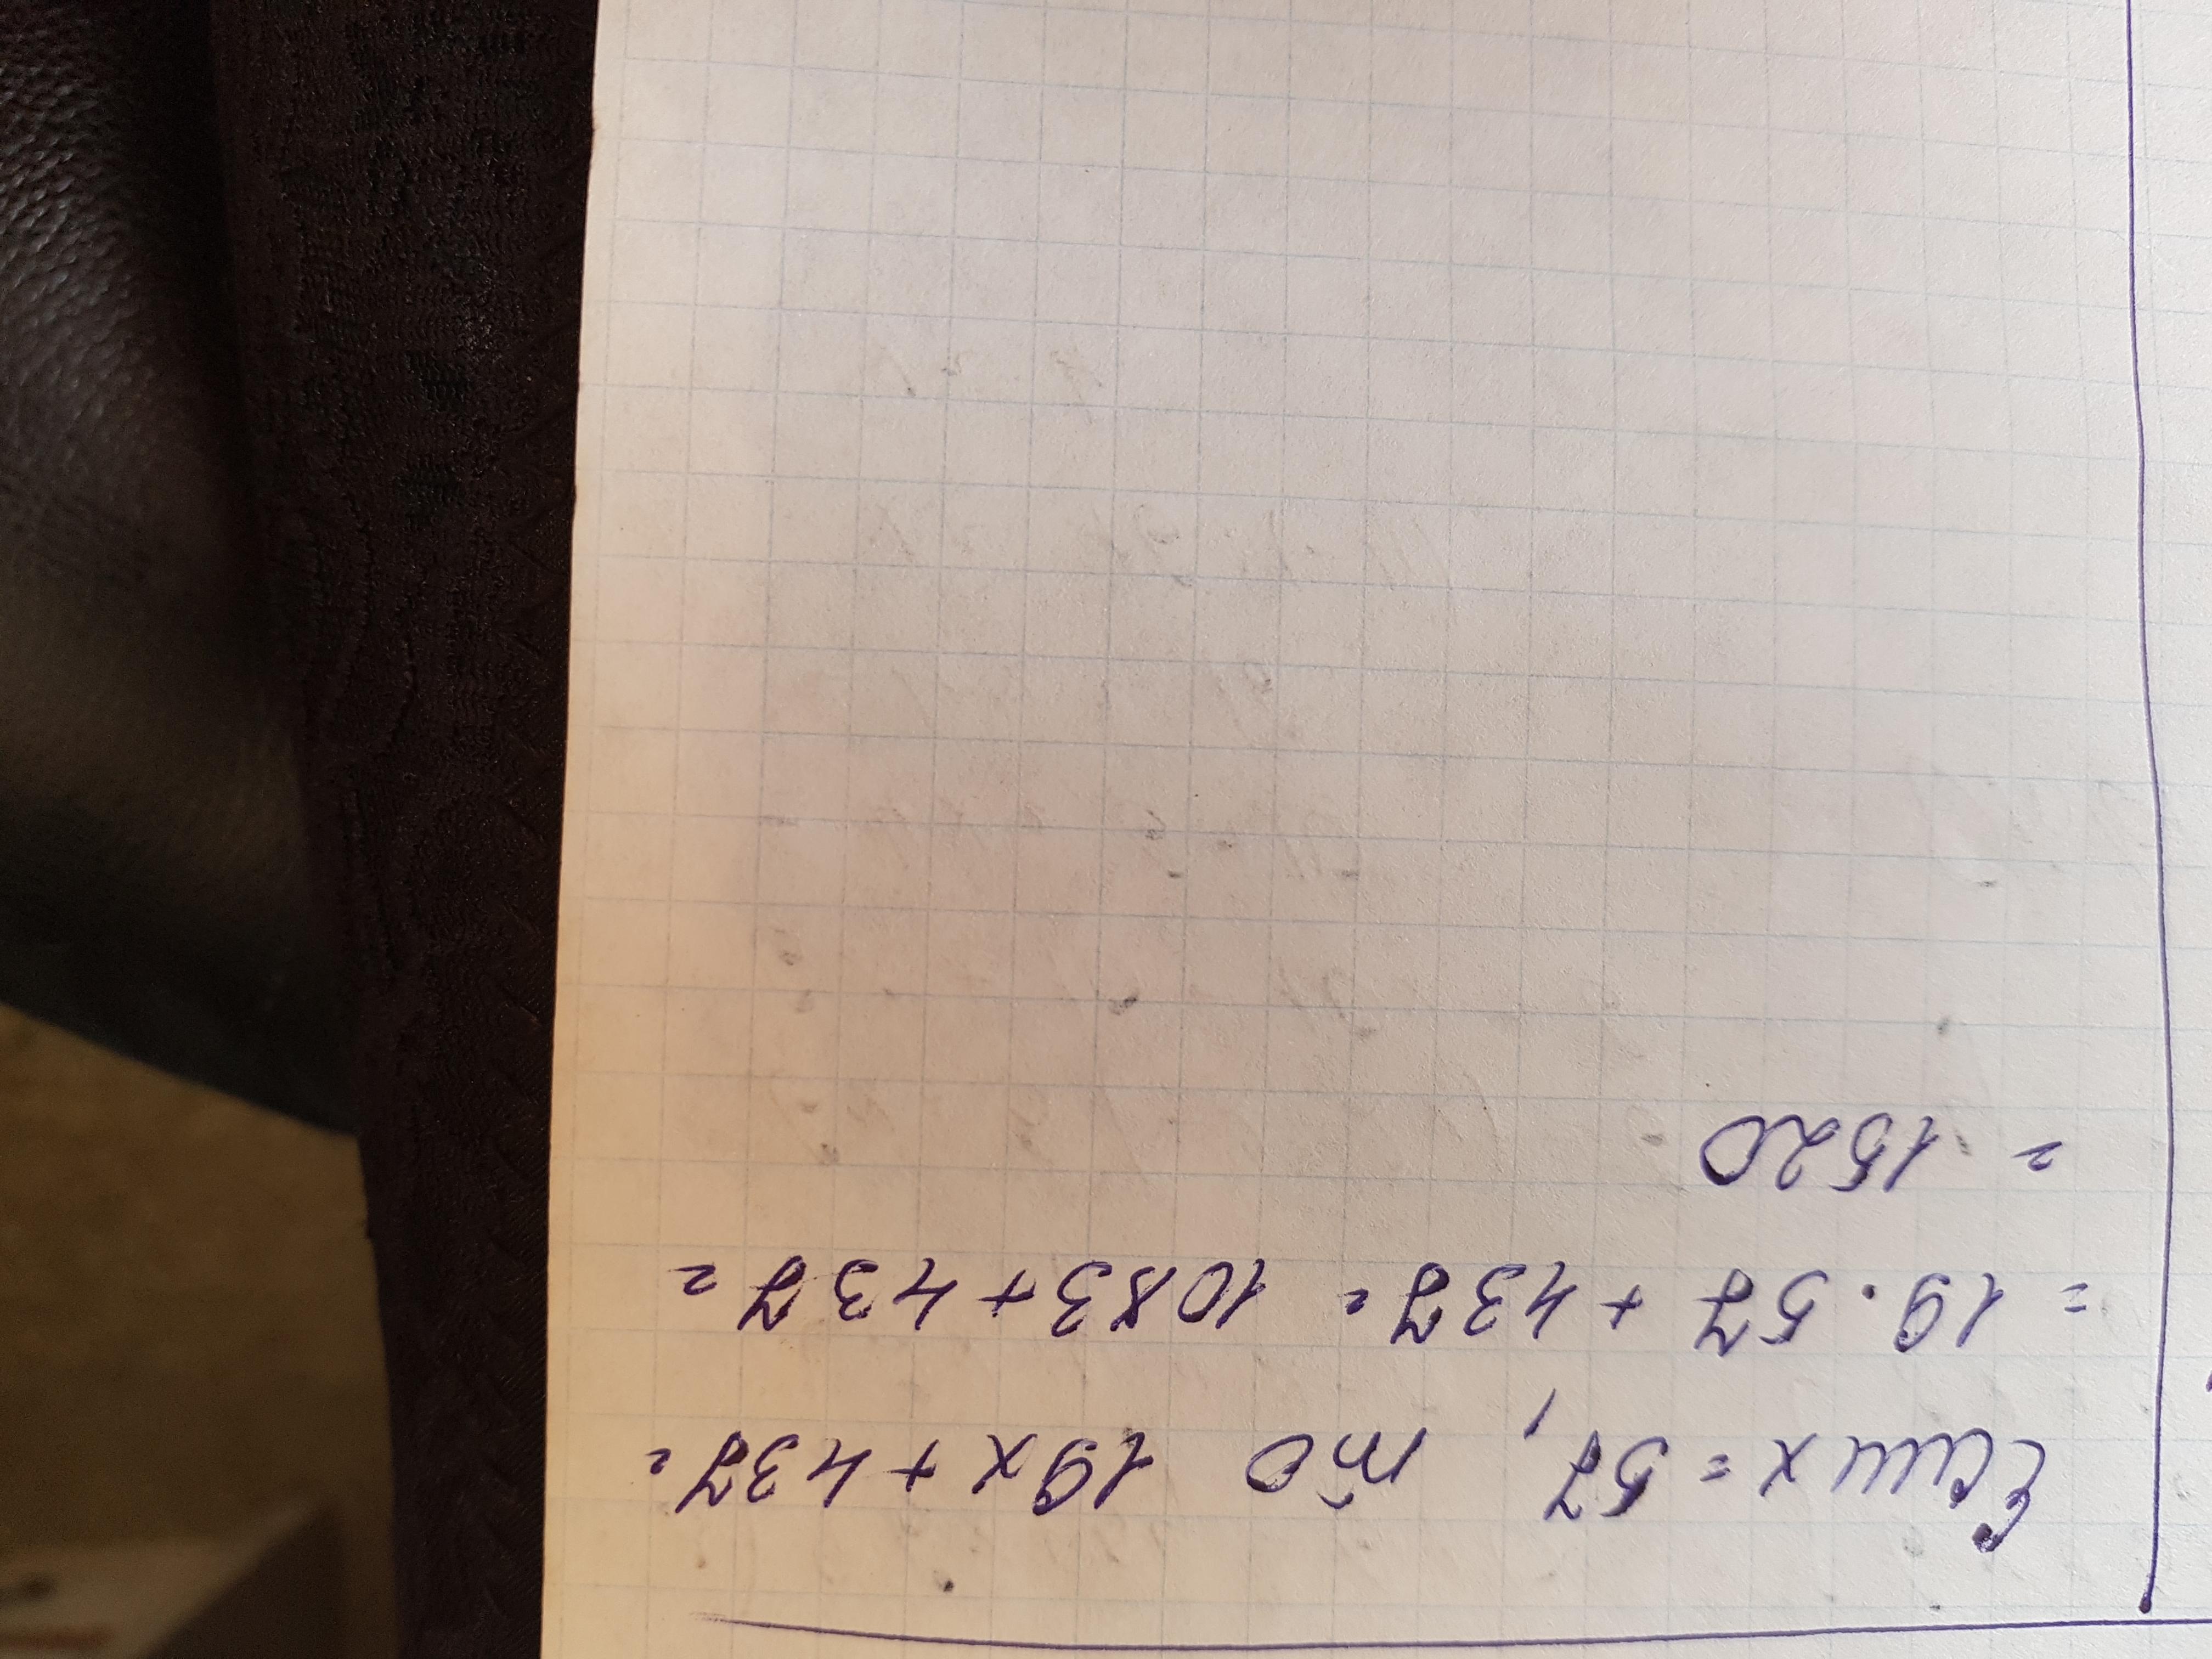 Если x = 57, то 19x + 437 =
= 19 · 57 + 437 = 1083 + 437 =
= 1520